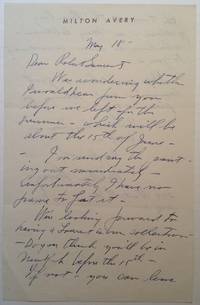 MILTON AVERY
May 18
Dear Robert
Was wondering whether
I would hear from you
before we left for the
summer - which will be
about the 15th of June -
- I'm sending the paint-
ing out immediately -
unfortunately I have no
frame to fit it -
looking forward to
having a in our collection -
- Do you think you'll be in
before the 15th -
If not - you can leave